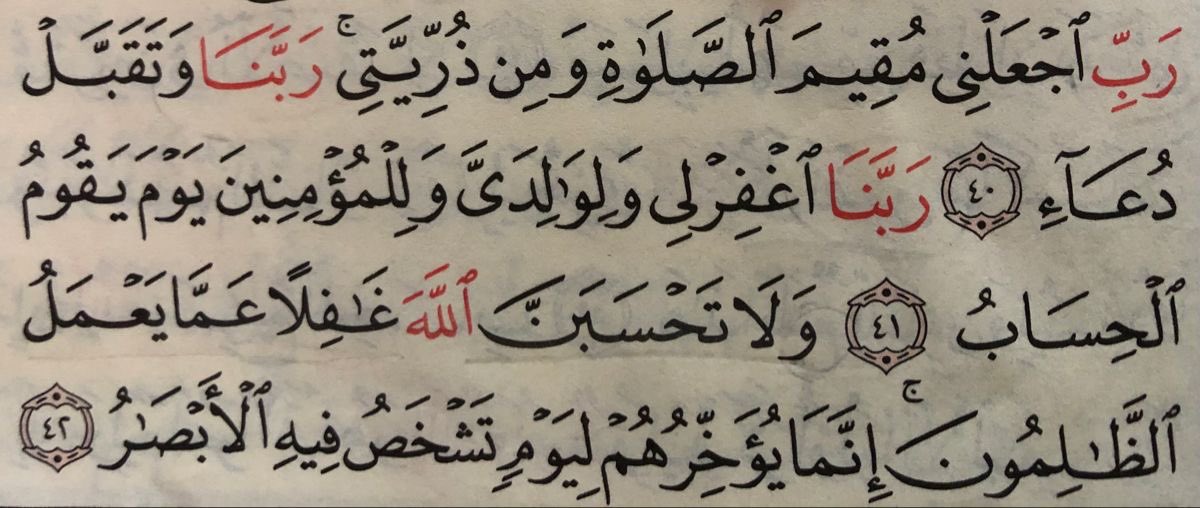 رَبِّ ٱجْعَلْنِى مُقِيمَ ٱلصَّلَوٰةِ وَمِن ذُرِّيَّتِى ۚ رَبَّنَا وَتَقَبَّلْ
دُعَآءِ ٤٠ رَبَّنَا ٱغْفِرْ لِى وَلِوَٰلِدَىَّ وَلِلْمُؤْمِنِينَ يَوْمَ يَقُومُ
ٱلْحِسَابُ ٤١ وَلَا تَحْسَبَنَّ ٱللَّهَ غَٰفِلًا عَمَّا يَعْمَلُ
ٱلظَّٰلِمُونَ ۚ إِنَّمَا يُؤَخِّرُهُمْ لِيَوْمٍ تَشْخَصُ فِيهِ ٱلْأَبْصَٰرُ ٤٢